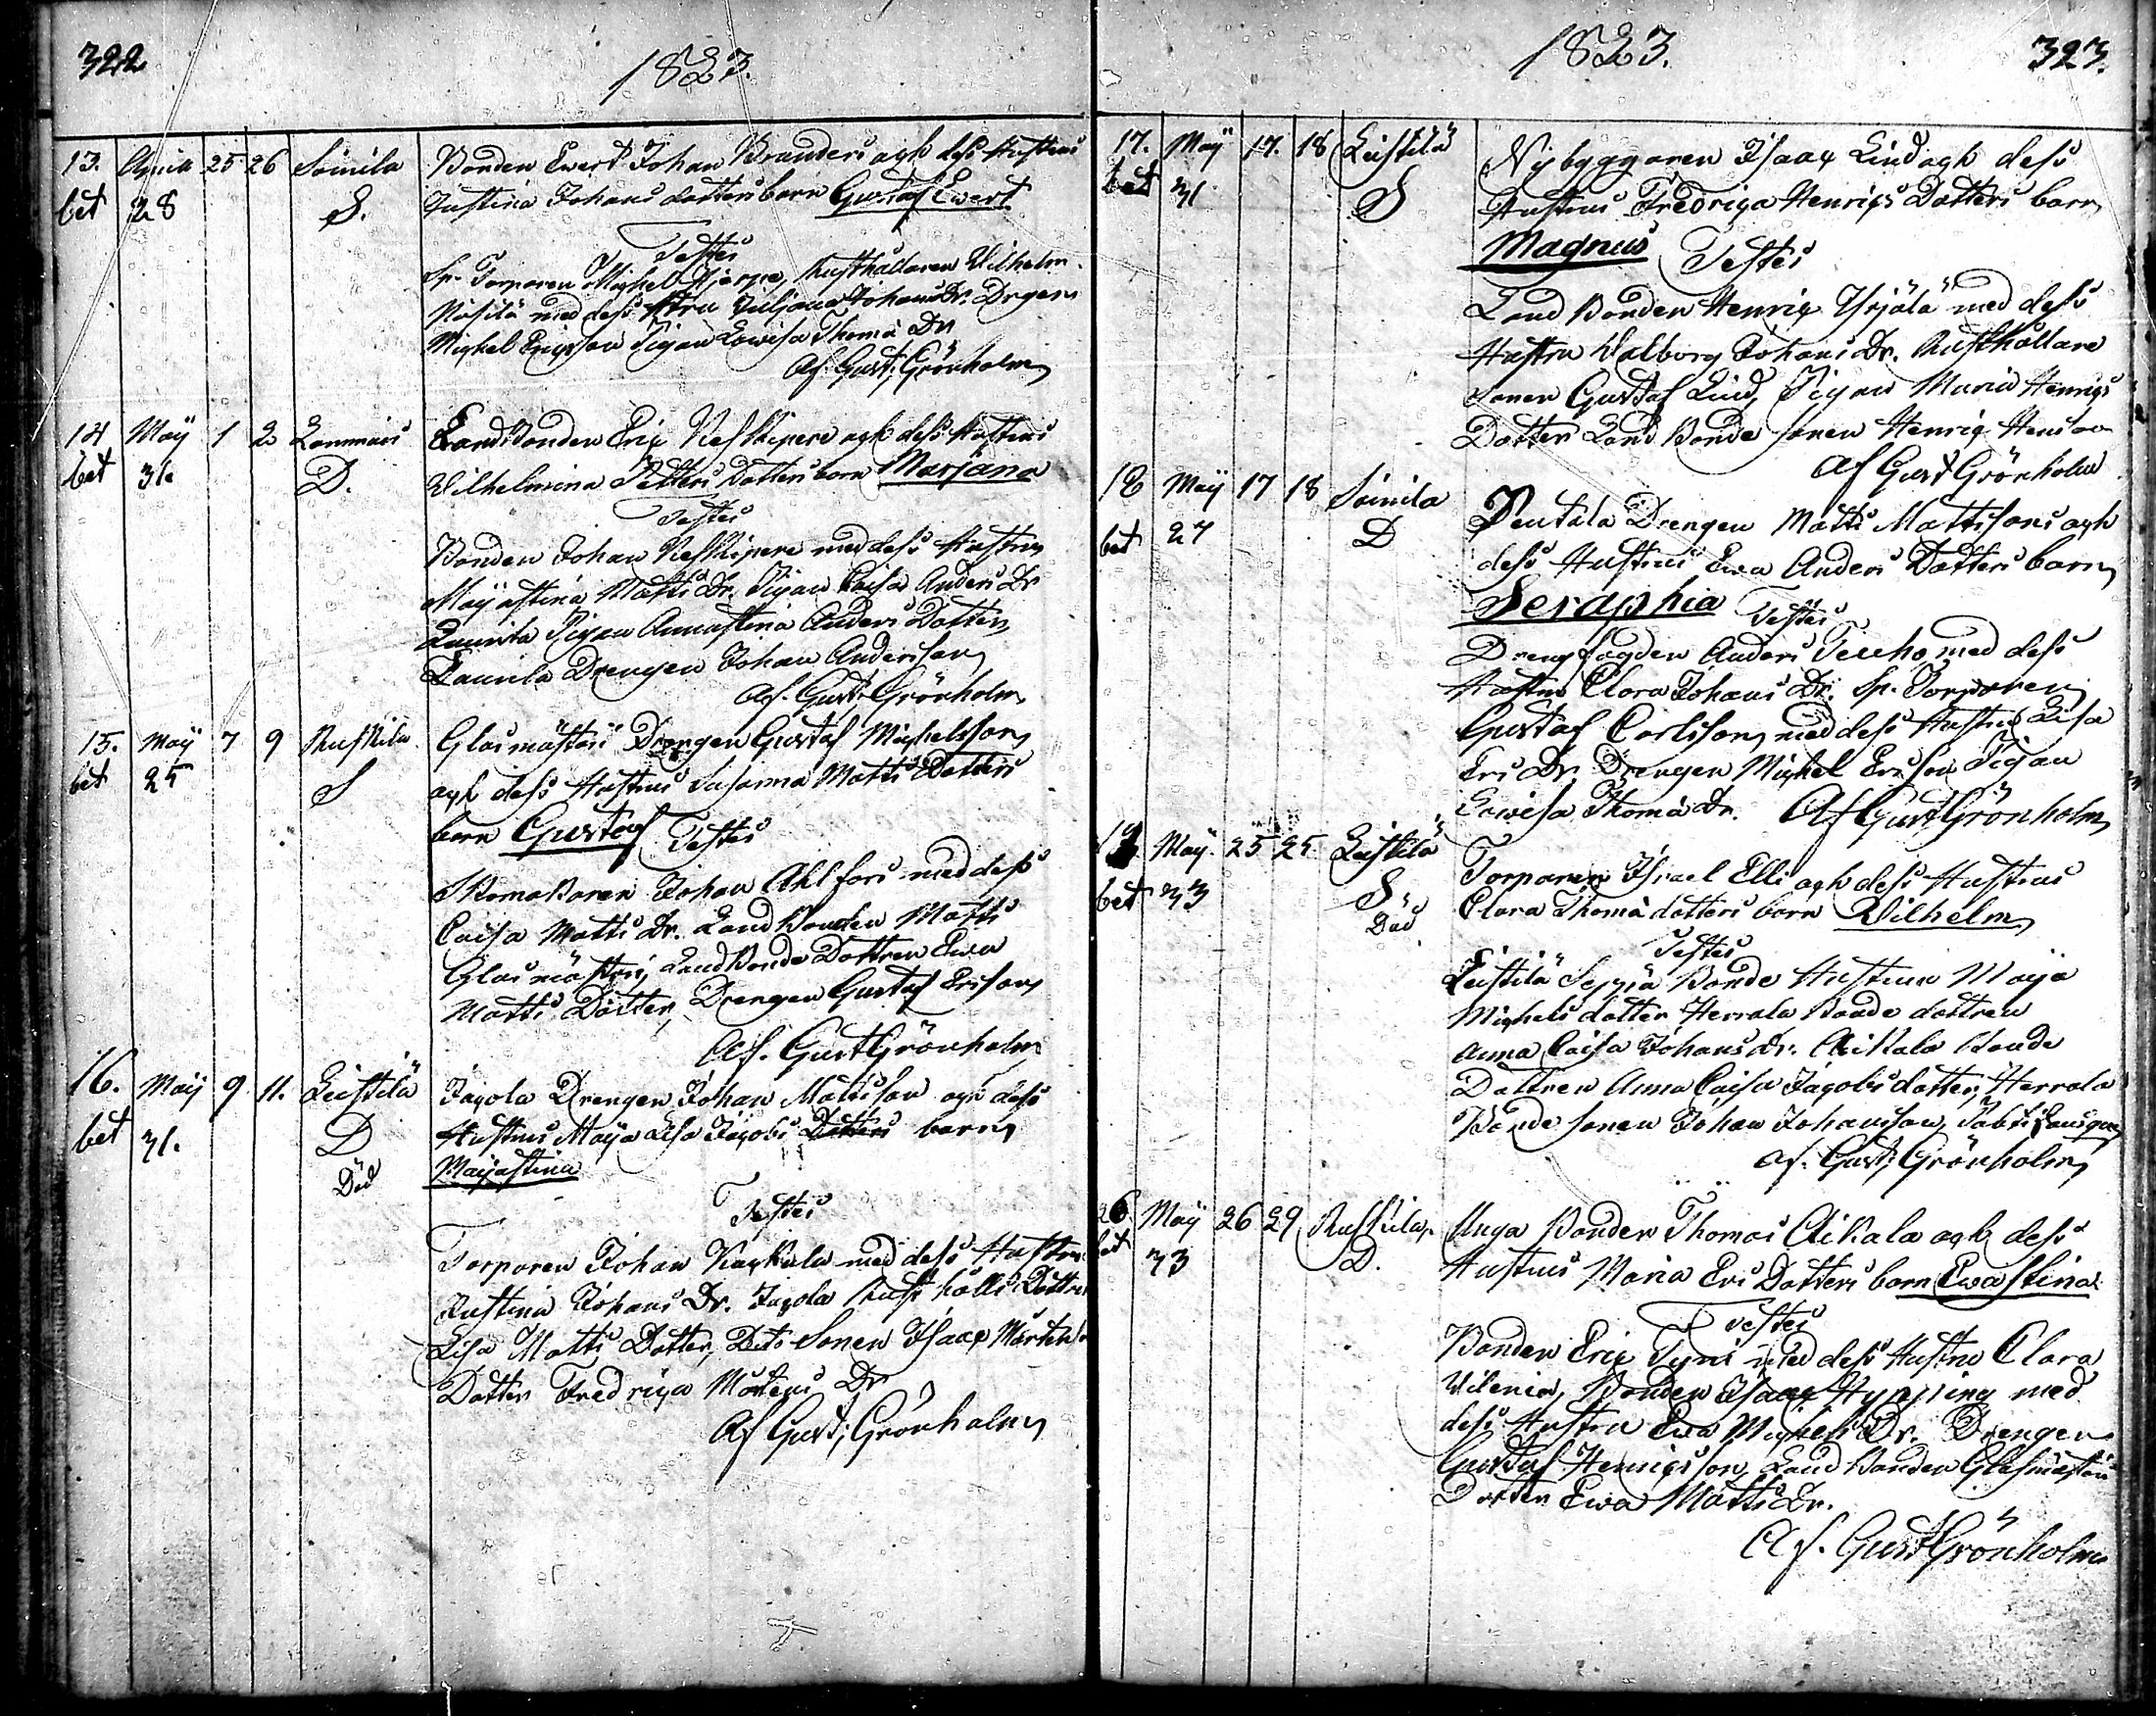 322
1823.
13. April 25 26 Soinila Bonden Ewert Johan Branders och dess Hustrus
bet 28 S. Justina Johans dotters barn Gustaf Ewert
Testes
Sp. Torparen Michel Hjerpe, Rusthållaren Wilhelm
med dess Hustru Juljana Johans Dr. Drgen
Michel Ericsson Pigan Lowisa Thomä Dr
Af. Gust: Grönholm
14 May 1 2 Landbonden Eric Neskipere och dess Hustrus
bet 31. D. Wilhelmina Petters Dotters barn Marjana
Testes
Bonden Johan Neskipere med dess Hustru
Majastina Matts Dr. Pigan Caisa Anders Dr
Laurila Pigan Annastina Anders Dotter
Laurila Drengen Johan Andersson
Af. Gust: Grönholm
15. May 7 9 Ruskila Glasmästari Drengen Gustaf Michelsson
bet 25 S och dess Hustrus Susanna Matts Dotters
barn Gustaf Testes
Skomakaren Johan Ahlfors med dess
Caisa Matts Dr. Landbonden Matts
Glasmästari, Landbonde Dottren Ewa
Matts Dotter, Drengen Gustaf Ersson
Af. Gust Grönholm
16. Maij 9 11. Leistilä Jacola Drengen Johan Mattsson och dess
bet 31. D Hustrus Maja Lisa Jacobs Dotters barn
Död Majastina
Testes
Torparen Johan Kaskala med dess Hustru
Justina Johans Dr. Jacola Rusthålls Dottren
Lisa Matts Dotter, Dito Sonen Isaac Mårtensson
Dotter Fredrica Mårtens Dr
Af Gust; Grönholm
1823.
323.
17. Maÿ 17. 18 Leistilä Nybyggaren Isaac Lind och dess
bet 31 S Hustrus Fredrica Henrics Dotters barn
Magnus Testes
Landbonden Henric Yrjälä med dess
Hustru Walborg Johans Dr. Rusthållare
sonen Gustaf Lind, Pigan Maria Henrics
Dotter Landbonde sonen Henric Hensson
Af Gust Grönholm
18 Maÿ 17 18 Soinila Pentala Drengen Matts Mattssons och
bet 27 D dess Hustrus Ewa Anders Dotters barn
Seraphia Testes
Drengfogden Anders Terho med dess
Hustru Clara Johans Dr. Sp. Torparen
Gustaf Carlsson med dess Hustru Lisa
Ers Dr. Drengen Michel Ersson Pigan
Lowisa Thomä Dr. Af Gust Grönholm
19 Maÿ 25 25 Leistilä Torparen Israel Elli och dess Hustrus
bet 33 S Clara Thomä dotters barn Wilhelm
Död
Testes
Leistilä Seppä Bonde Hustrun Maija
Michels dotter Herrala Bonde dottren
Anna Caisa Johans Dr. Aikala Bonde
Dottren Anna Caisa Jacobs dotter, Herrala
Bonde sonen Johan Johansson,
Af. Gust; Grönholm
20. Maÿ 26 29 Ruskila, Unga Bonden Thomas Aikala och dess
bet 33 D. Hustrus Maria Ers Dotters barn Ewastina
Testes
Bonden Eric Tyni med dess Hustru Clara
Wilenia, Bonden Isaac Hypping med
dess Hustru Ewa Michels Dr. Drengen
Gustaf Henricsson, Landbonden Glasmästari
Dotter Ewa Matts Dr.
Af. Gust Grönholm